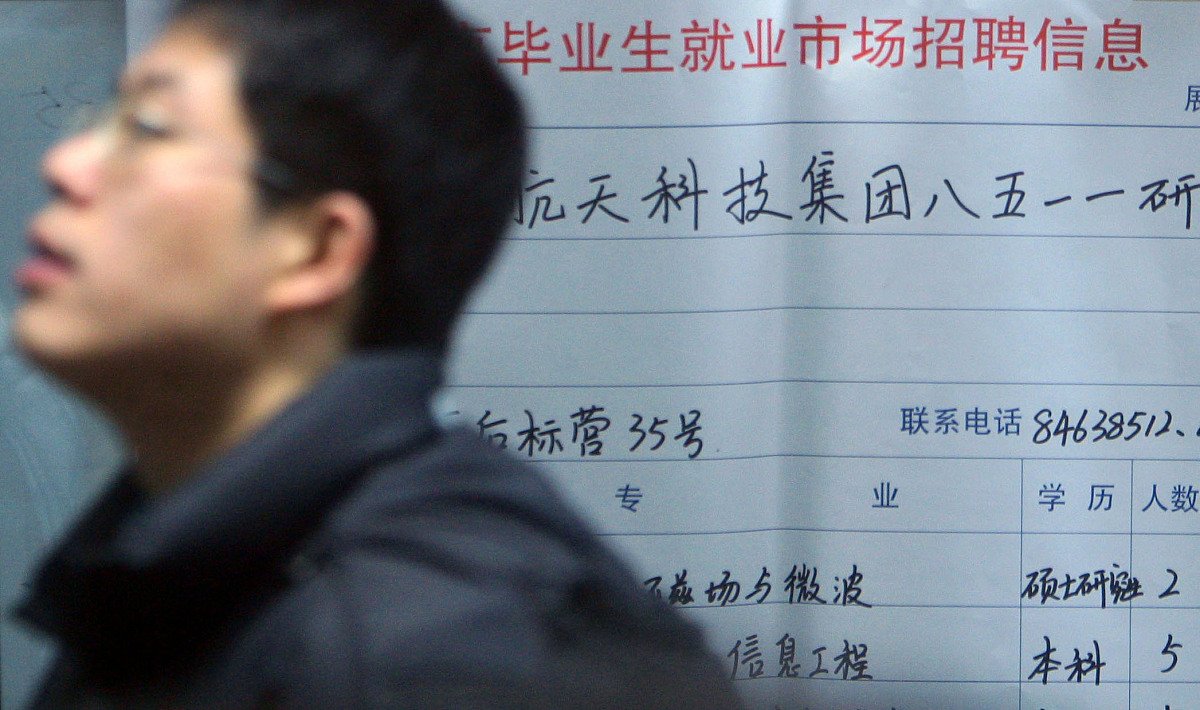 毕业生就业市场招聘信息
展
航天科技集团八五一一研
后标营35号
联系电话 84638512、
专 业 学历 人数
磁场与微波 硕士研究生 2
信息工程 本科 5